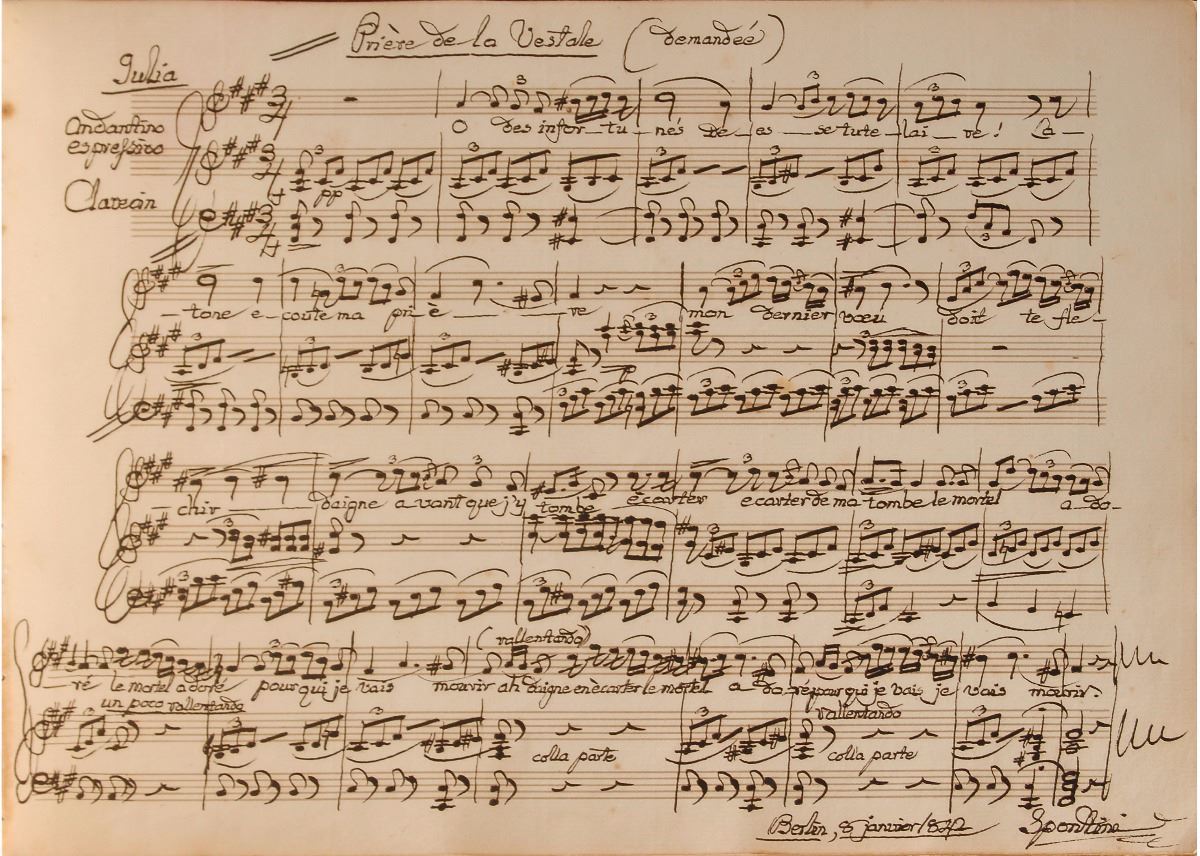 Prière de la Vestale (demandeé)
Julia
Andantino
espressivo
Clavecin
pp
O des infor_tu_nés de_es_se tute_lai_re! La_
_tone e_coute ma pri_è_re mon dernier vœu doit te flé_
p
chir daigne a_vant que j'y tombe écarter ecarter de ma tombe le mortel a_do_
(rallentando)
_ré le mortel adoré pour qui je vais mourir ah daigne en écarter le mortel a_do_ré pour qui je vais je vais mourir.
un poco rallentando
rallentando
colla parte
colla parte
Berlin, 8 janvier 1842 Spontini